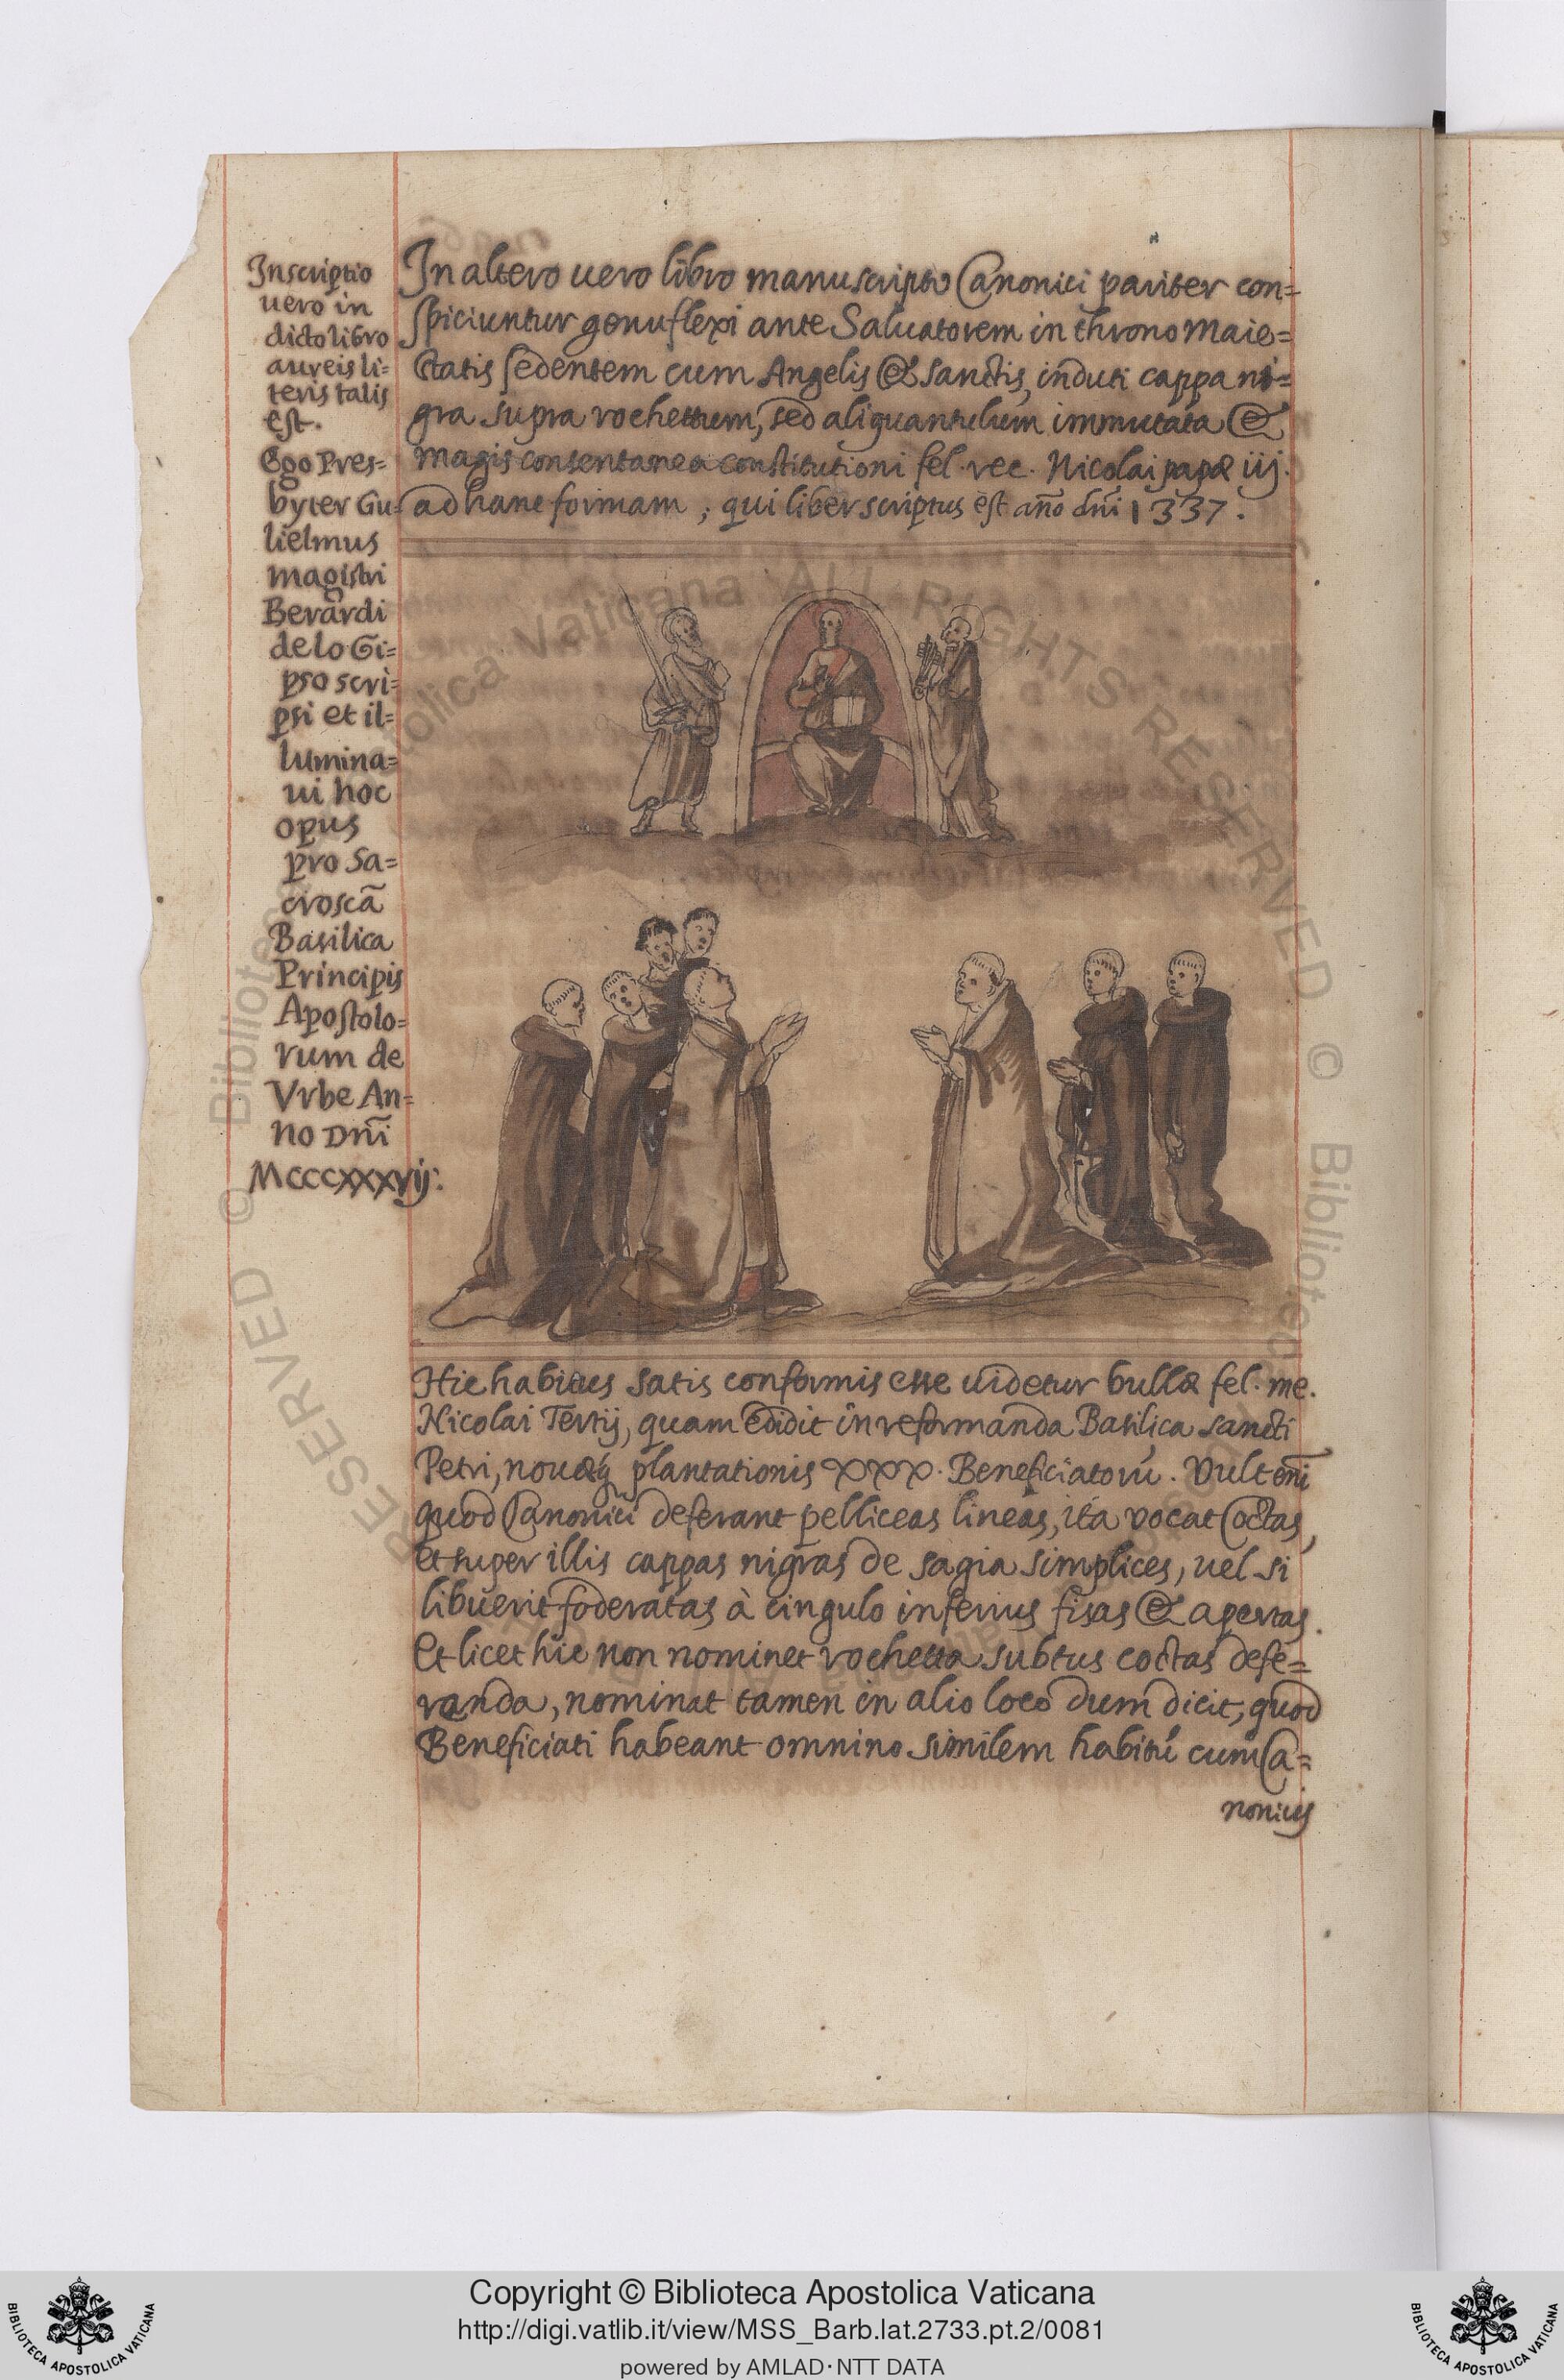 Inscriptio
uero in
dicto libro
aureis li=
teris talis
est.
Ego Pres=
byter Gu=
lielmus
magistri
Berardi
de lo Gi=
pso scri=
psi et il=
lumina=
ui hoc
opus
pro Sa=
croscã
Basilica
Principis
Apostolo=
rum de
Vrbe An=
no Dñi
MCCCXXXVij.
In altero uero libro manuscripto Canonici pariter con=
spiciuntur genuflexi ante Saluatorem in throno Maie=
statis sedentem cum Angelis & Sanctis, induti cappa ni=
gra supra rochettum, sed aliquantulum immutata &
magis consentanea constitutioni fel. rec. Nicolai papæ iij.
ad hanc formam; qui liber scriptus est año dñi 1337.
Hic habitus satis conformis esse uidetur bullæ fel. me.
Nicolai Tertij, quam edidit in reformanda Basilica sancti
Petri, nouæq plantationis XXX. Beneficiatorũ. Vult eñi
quod Canonici deferant pelliceas lineas, ita vocat Coctas,
et super illis cappas nigras de sagia simplices, uel si
libuerit foderatas à cingulo inferius fisas & apertas.
Et licet hic non nominet rochetta subtus coctas defe=
renda, nominat tamen in alio loco dum dicit, quod
Beneficiati habeant omnino similem habitũ cum Ca=
nonicis
Copyright © Biblioteca Apostolica Vaticana
http://digi.vatlib.it/view/MSS_Barb.lat.2733.pt.2/0081
powered by AMLAD·NTT DATA
BIBLIOTECA APOSTOLICA VATICANA
BIBLIOTECA APOSTOLICA VATICANA